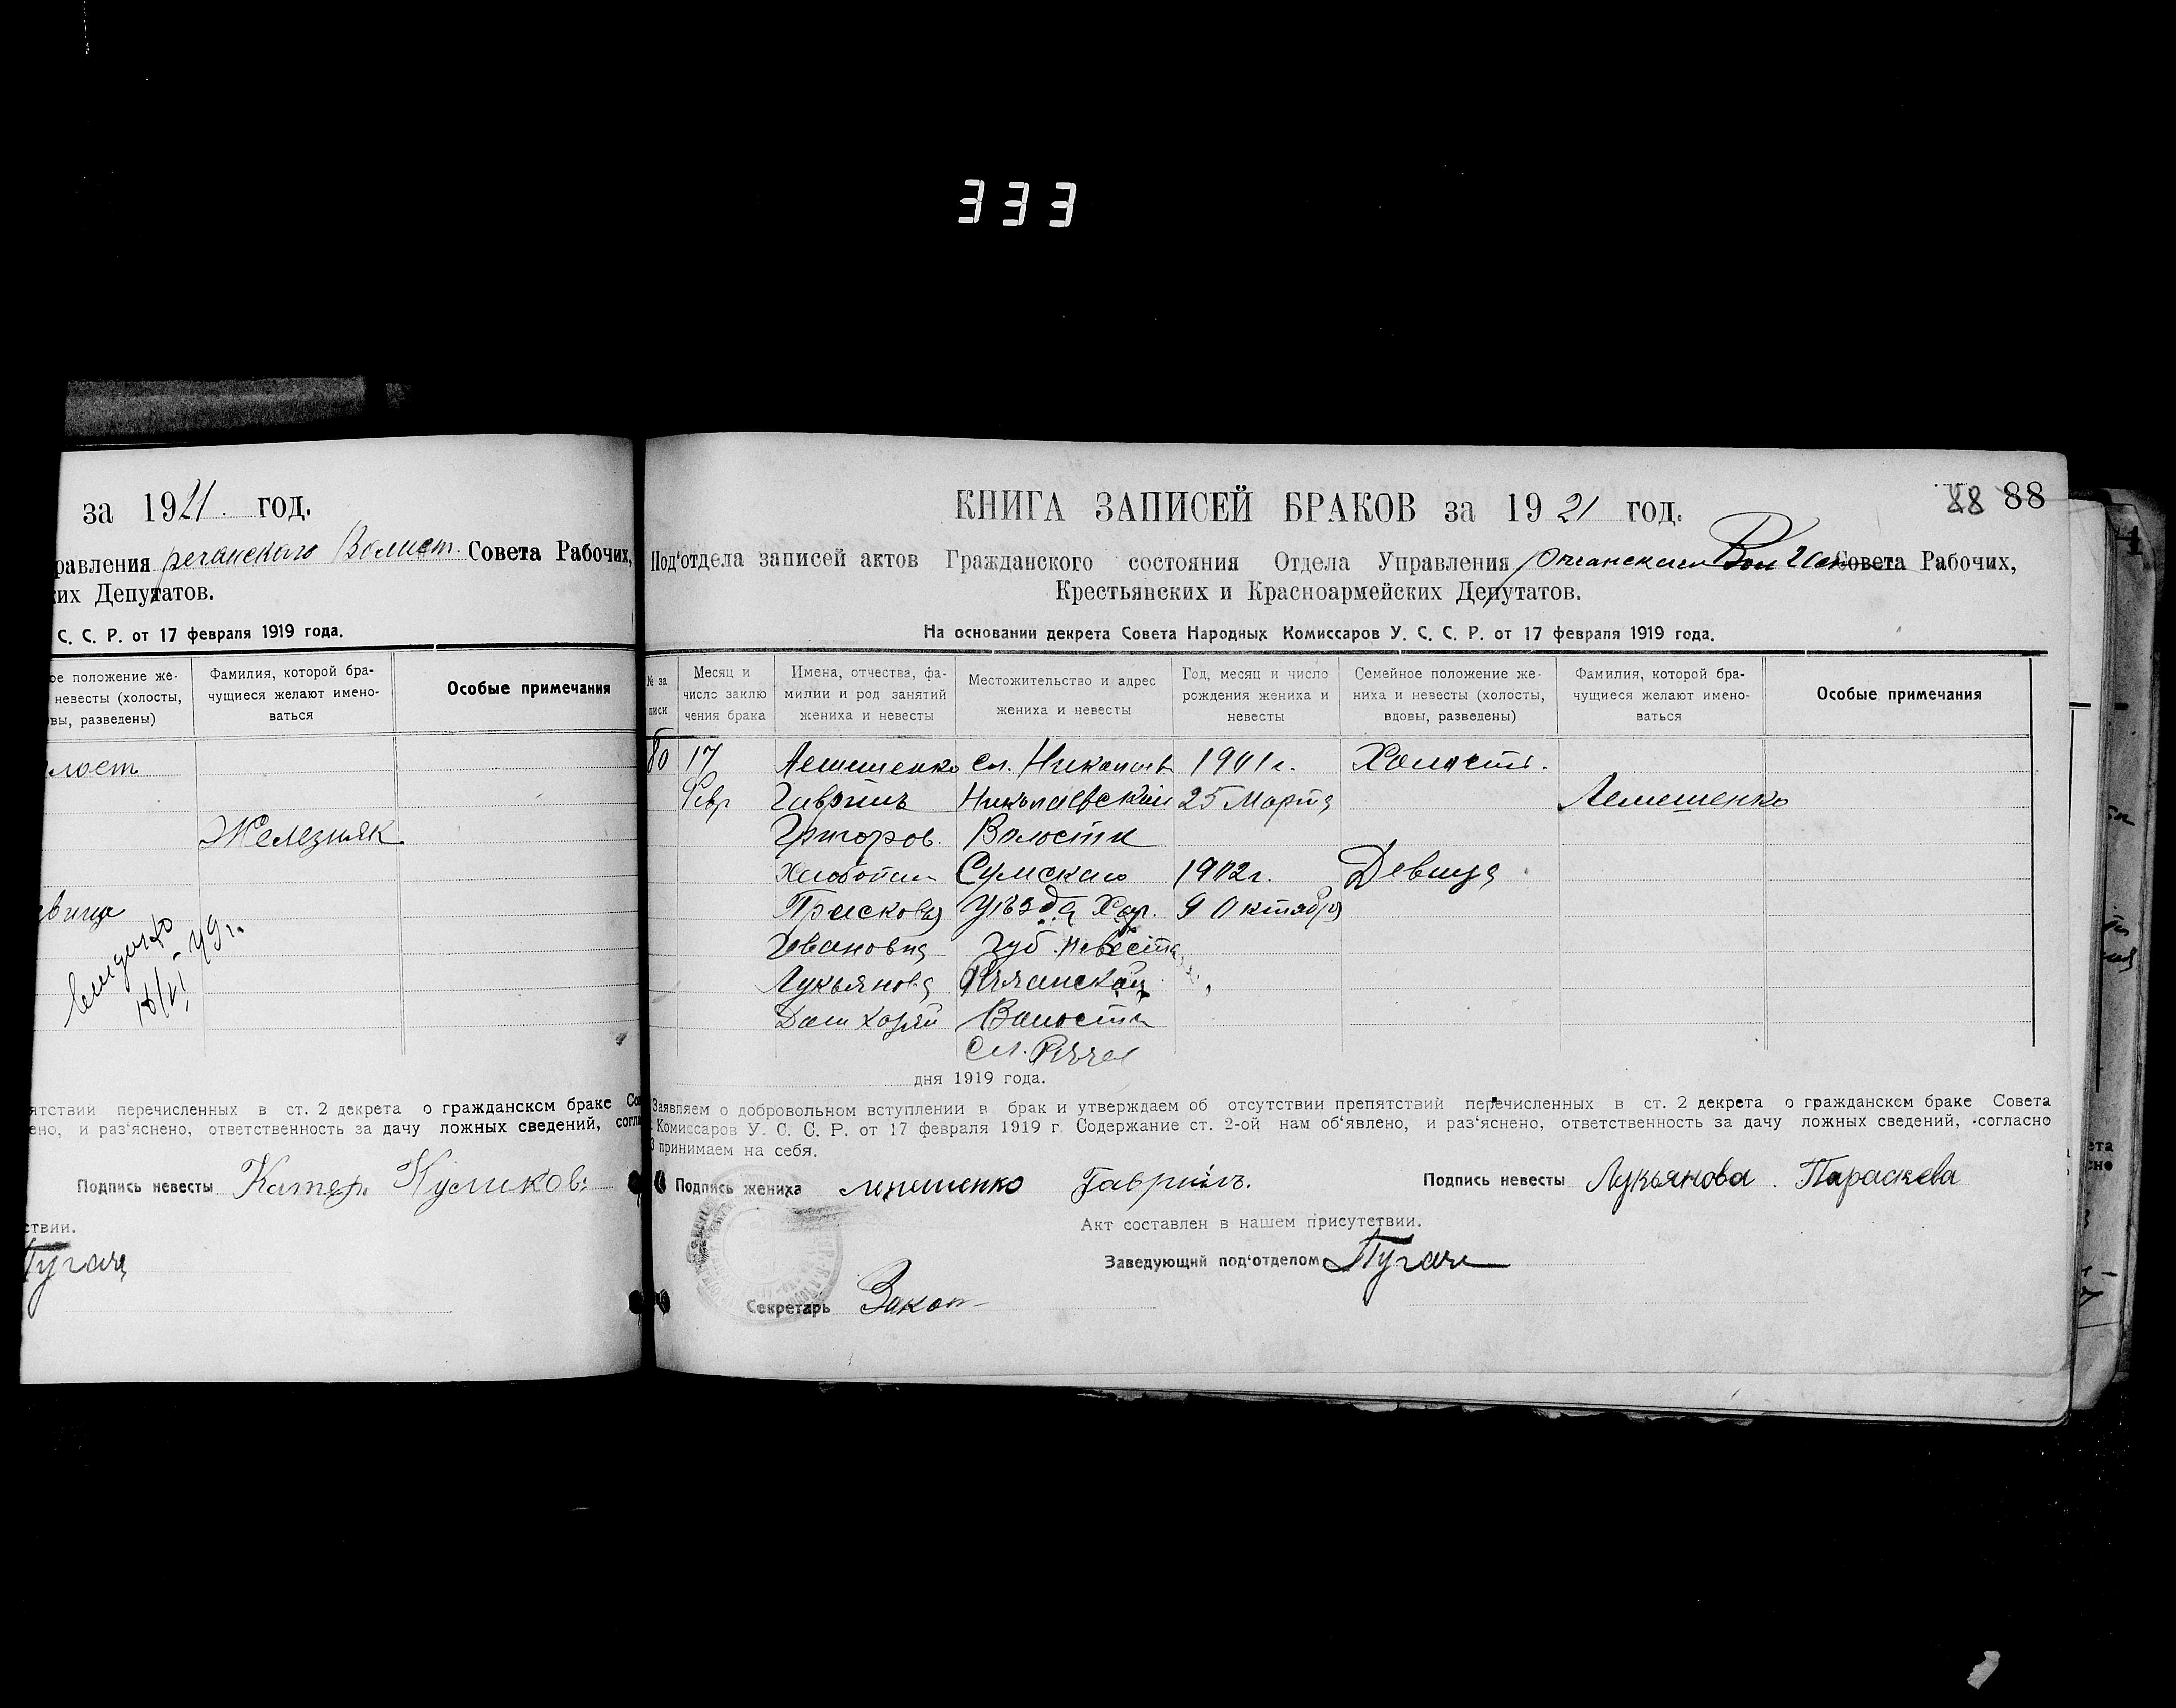 333
за 1921. год.
равления речанского Волист. Совета Рабочих,
ких Депутатов.
С. С. Р. от 17 февраля 1919 года.
ое положение же-
невесты (холосты,
овы, разведены)
Фамилия, которой бра-
чущиеся желают имено-
ваться
Особые примечания
лост
Железняк
вица
18/VI - 49 г.
ятствий перечисленных в ст. 2 декрета о гражданском браке Сов
ено, и раз'яснено, ответственность за дачу ложных сведений, согла
Подпись невесты Катер. Куликов.
ствии.
Пугач
88 88
КНИГА ЗАПИСЕЙ БРАКОВ за 1921 год.
Под'отдела записей актов Гражданского состояния Отдела Управления Совета Рабочих,
Крестьянских и Красноармейских Депутатов.
На основании декрета Совета Народных Комиссаров У. С. С. Р. от 17 февраля 1919 года.
№ за
писи
Месяц и
число заклю
чения брака
Имена, отчества, фа-
милии и род занятий
жениха и невесты
Местожительство и адрес
жениха и невесты
Год, месяц и число
рождения жениха и
невесты
Семейное положение же-
ниха и невесты (холосты,
вдовы, разведены)
Фамилия, которой бра-
чущиеся желают имено-
ваться
Особые примечания
80 17 Лемешенко сл. 1901 г. Холостъ.
Февр Гавриилъ Николаевской 25 Марта Лемешенко
Григоров. Волости
Хлебопаш Сумскаго 1902 г. Девица
Прасковья Уѣзда Хар. 9 Октября
Ивановна Губ. Невеста
Лукьянова Рѣчанской
Дом Хозяй Волости
Сл. Рѣчки
дня 1919 года.
Заявляем о добровольном вступлении в брак и утверждаем об отсутствии препятствий перечисленных в ст. 2 декрета о гражданском браке Совета
Комиссаров У. С. С. Р. от 17 февраля 1919 г. Содержание ст. 2-ой нам об'явлено, и раз'яснено, ответственность за дачу ложных сведений, согласно
3 принимаем на себя.
Подпись жениха Лемешенко Гавриилъ. Подпись невесты Лукьянова Параскева
Акт составлен в нашем присутствии.
Заведующий под'отделом Пугач
Секретарь